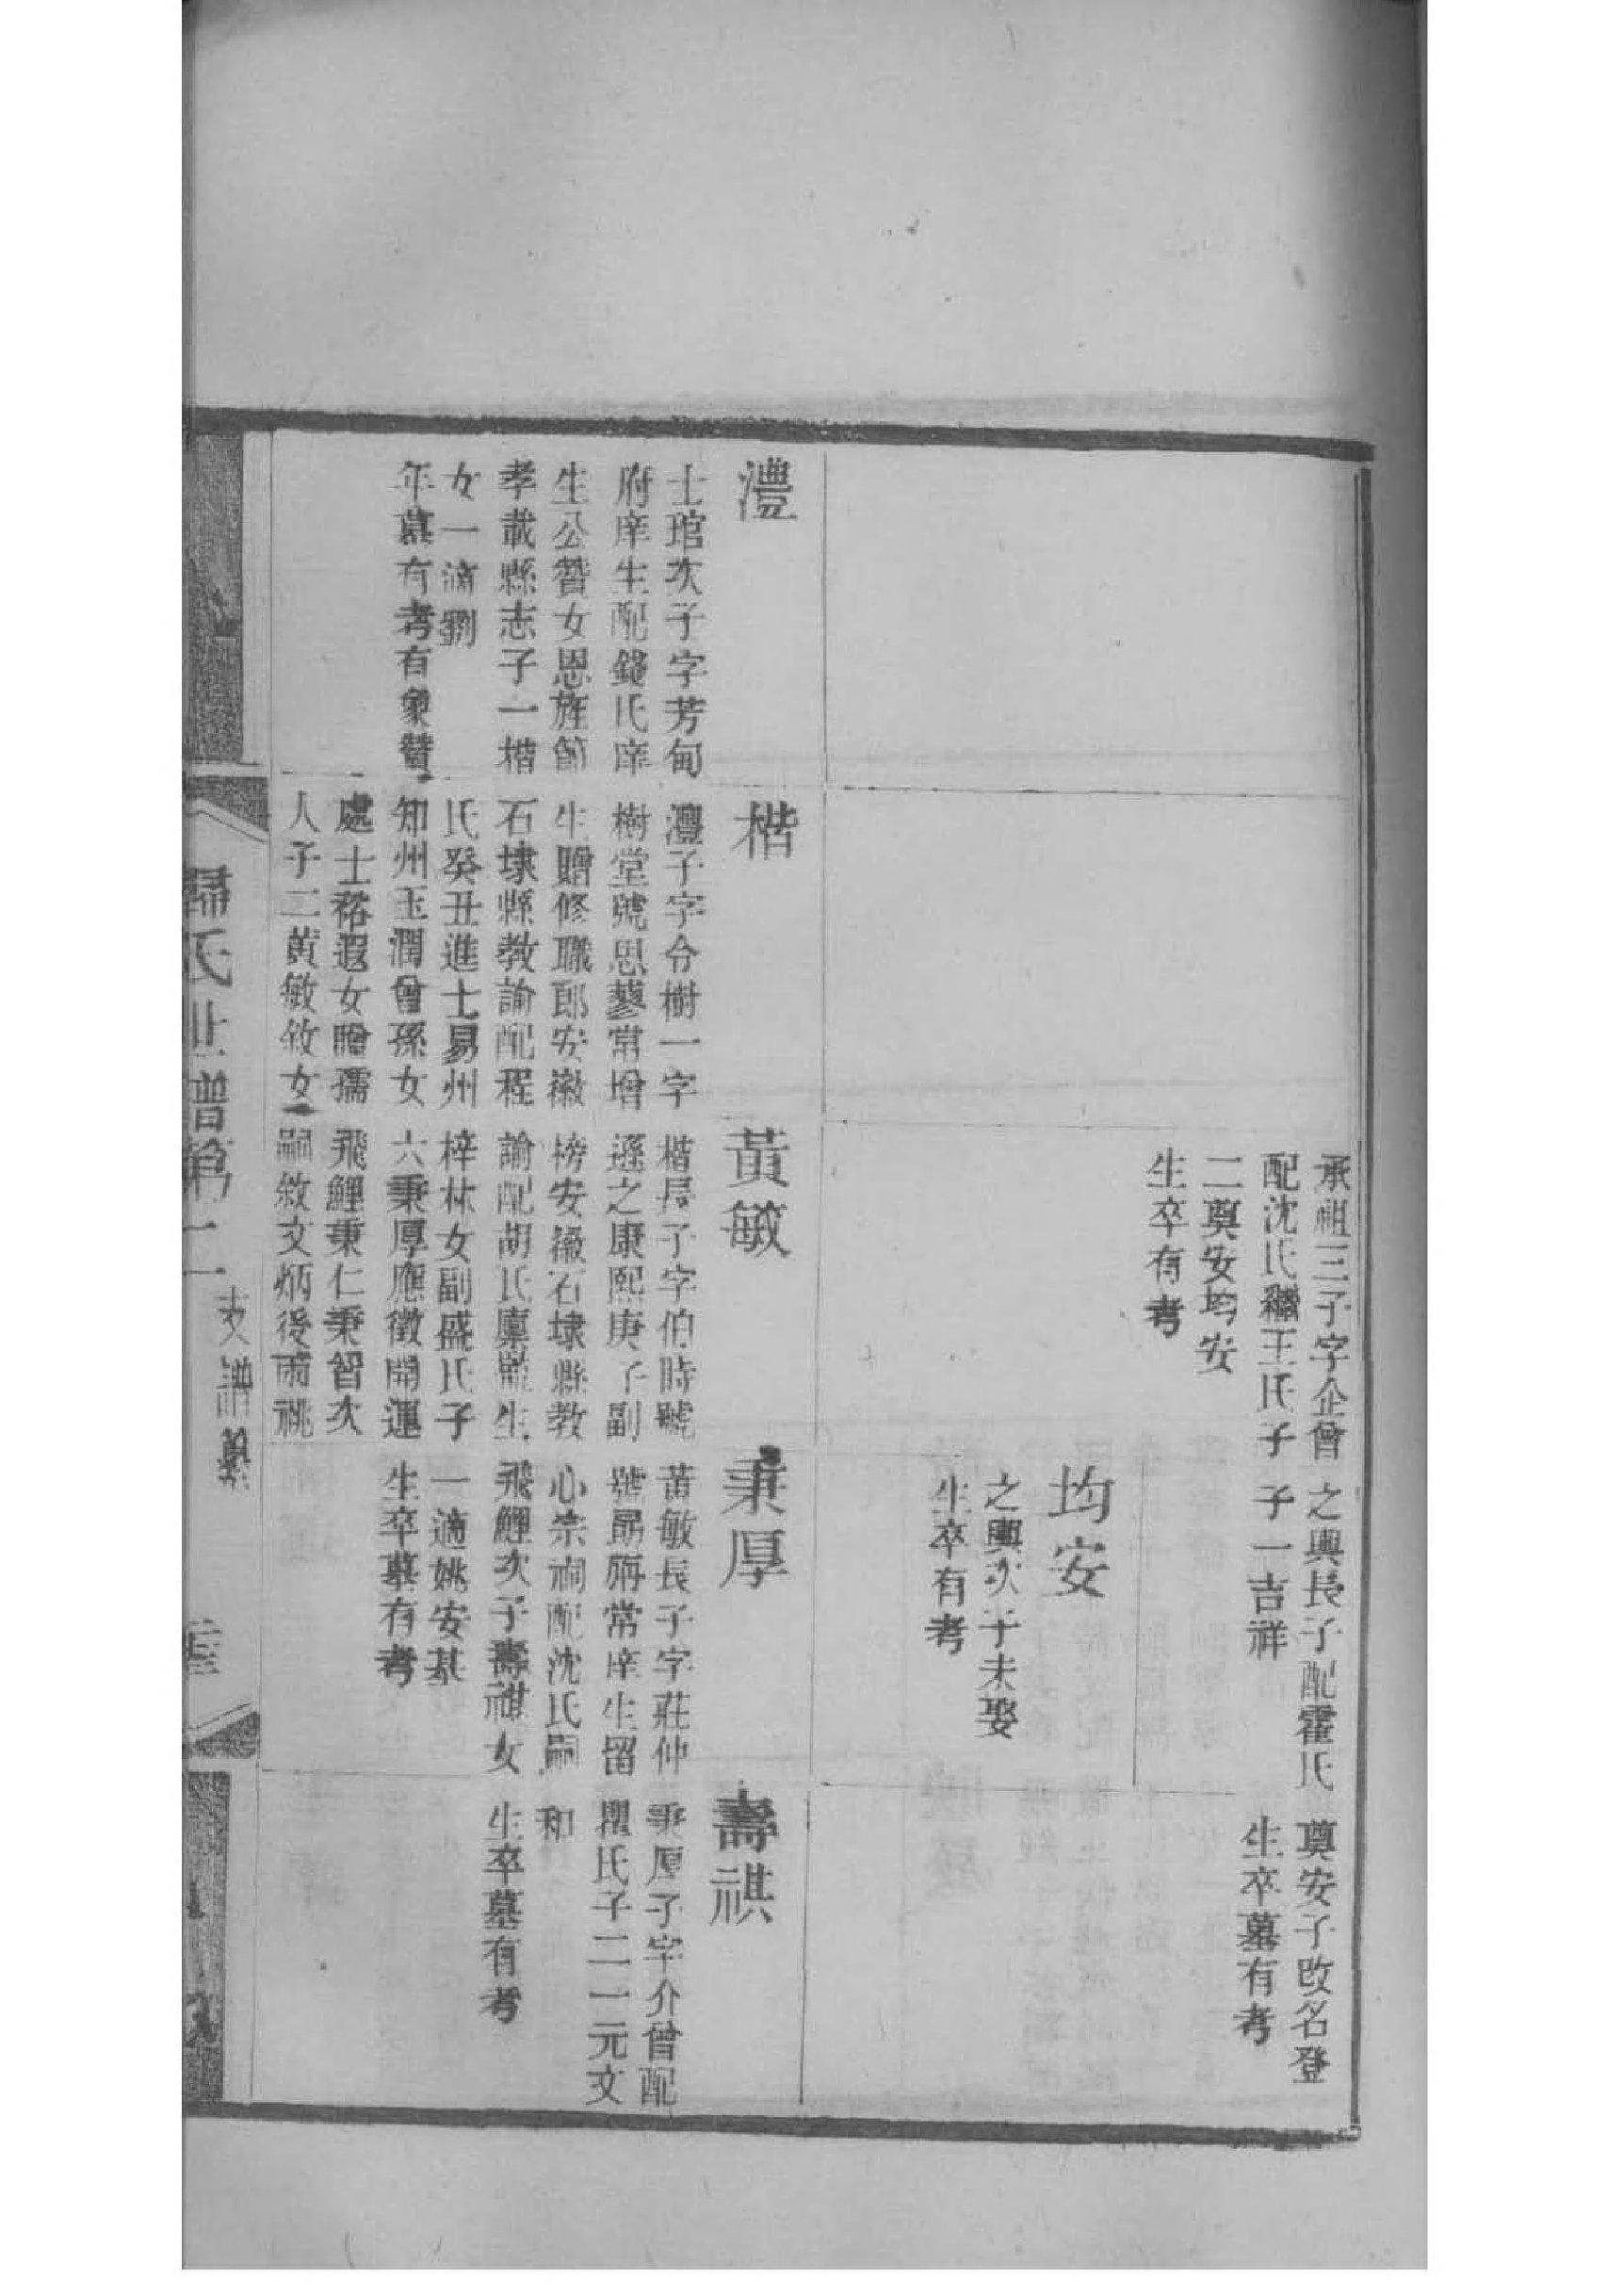 承祖三子字企曾
配沈氏繼王氏子
二奠安均安
生卒有考
之興長子配霍氏
子一吉祥
奠安子改名登
生卒墓有考
均安
之興次子未娶
生卒有考
澧
士琯次子字芳甸
府庠生配錢氏庠
生公贊女恩旌節
孝載縣志子一楷
女一適劉
年墓有考有象贊
楷
澧子字令樹一字
樹堂號思蓼常增
生贈修職郎安徽
石埭縣教諭配程
氏癸丑進士易州
知州玉潤曾孫女
處士裕遐女贈孺
人子二黃敏敘女一
黃敏
楷長子字伯時號
遜之康熙庚子副
榜安徽石埭縣教
諭配胡氏廩監生
梓林女副盛氏子
六秉厚應徵開運
飛鯉秉仁秉智次
嗣敘文炳後兩祧
秉厚
黃敏長子字莊仲
號勗旃常庠生留
心宗祠配沈氏嗣
飛鯉次子壽祺女
一適姚安基
生卒墓有考
壽祺
秉厚子字介曾配
瞿氏子二一元文
和
生卒墓有考
氏世譜第十一
支譜